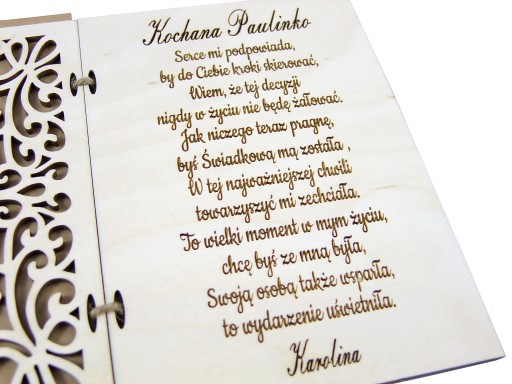 Kochana Paulinko
Serce mi podpowiada,
by do Ciebie kroki skierować,
Wiem, że tej decyzji
nigdy w życiu nie będę żałować.
Jak niczego teraz pragnę,
byś Świadkową mą została ,
W tej najważniejszej chwili
towarzyszyć mi zechciała.
To wielki moment w mym życiu,
chcę byś ze mną była,
Swoją osobą także wsparła,
to wydarzenie uświetniła.
Karolina